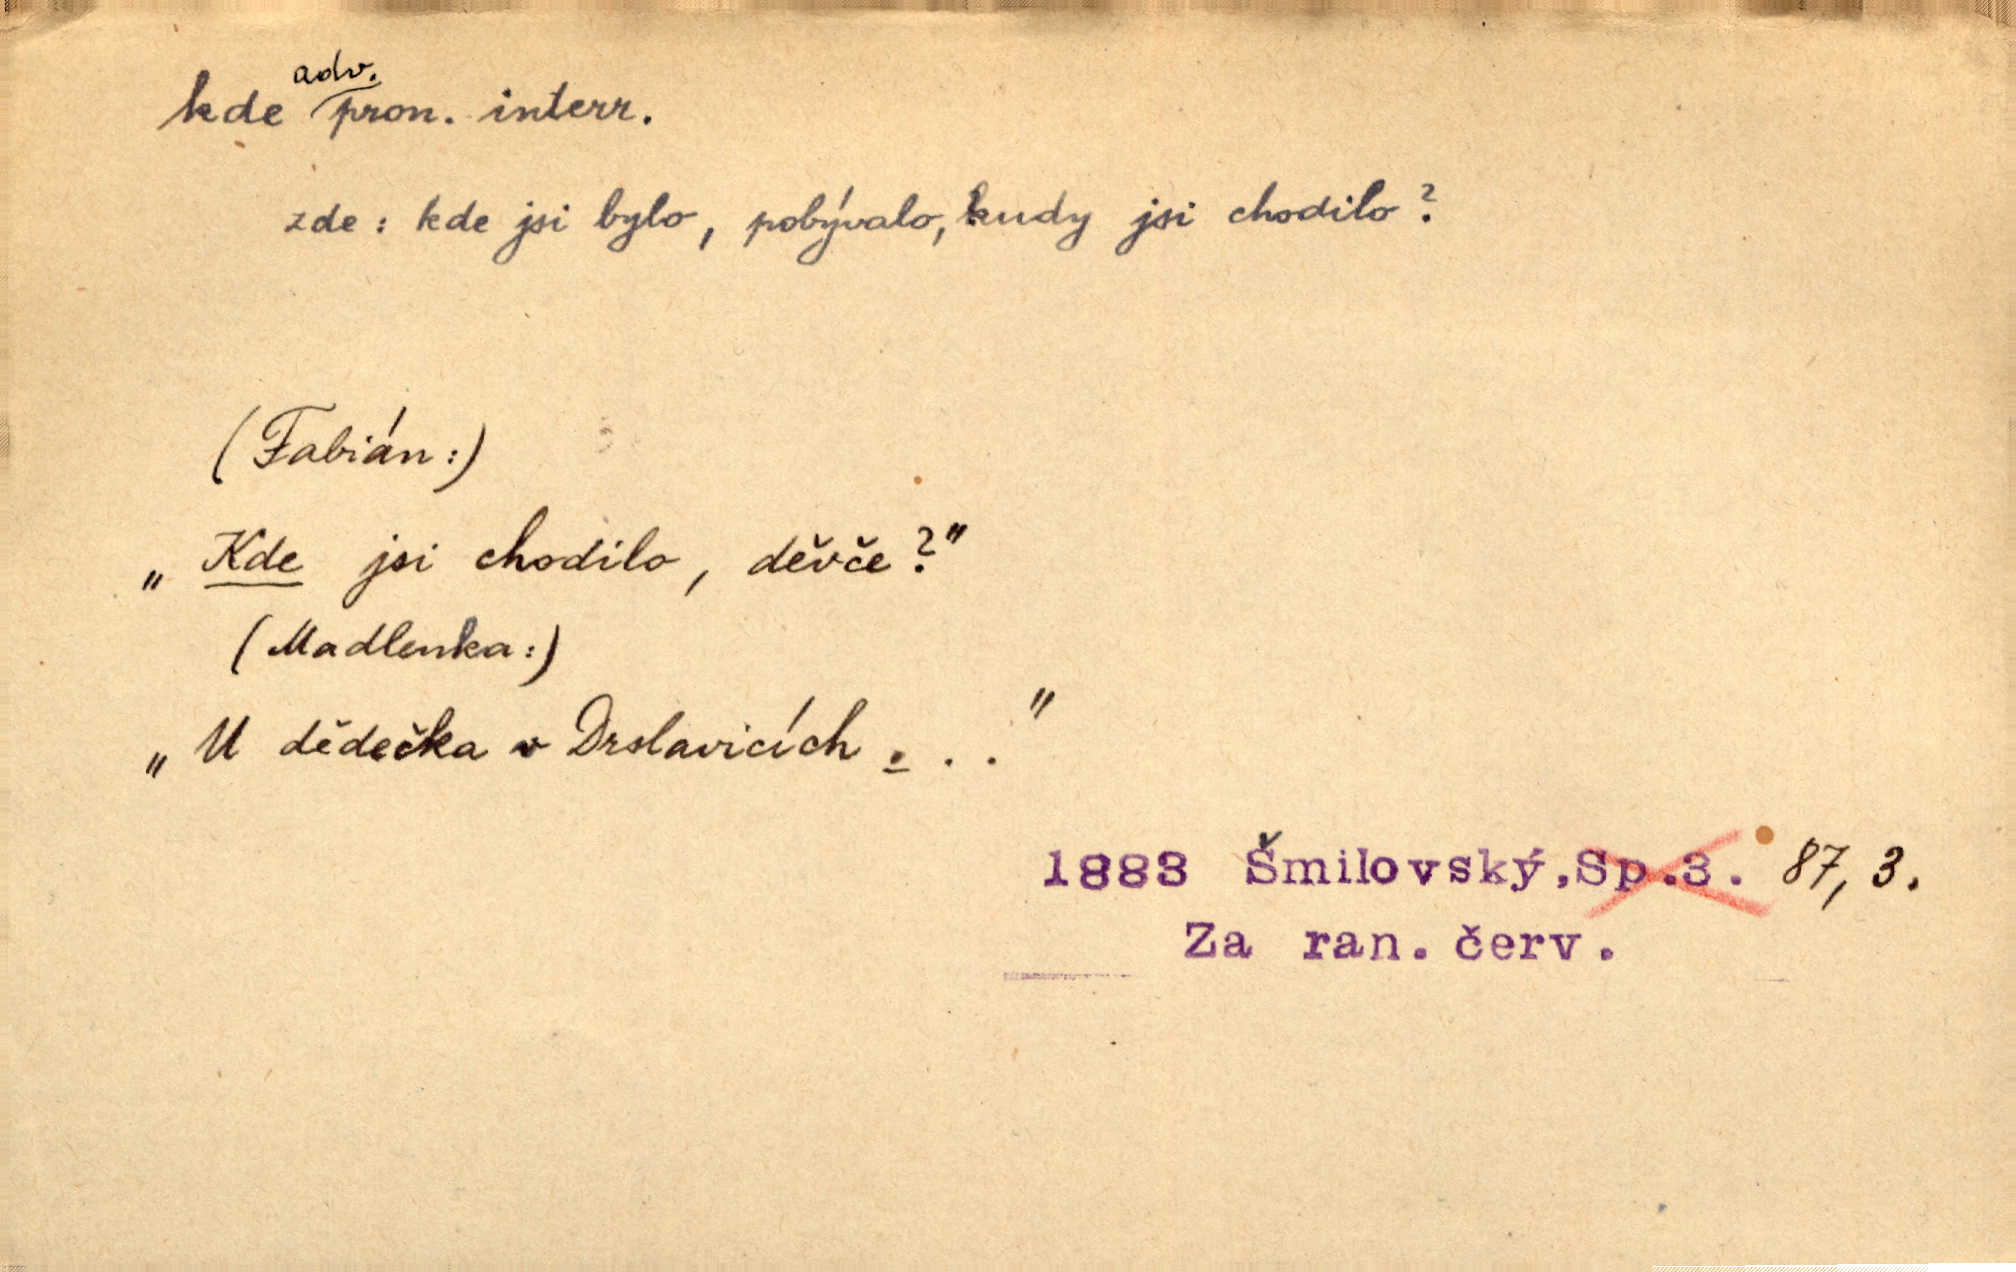 kde adv. pron. interr.
zde: kde jsi bylo, pobývalo, kudy jsi chodilo?
(Fabián:)
„Kde jsi chodilo, děvče?"
(Madlenka:)
„U dědečka v Drslavicích . . ."
1883 Šmilovský, Sp.3. 87, 3.
Za ran. červ.